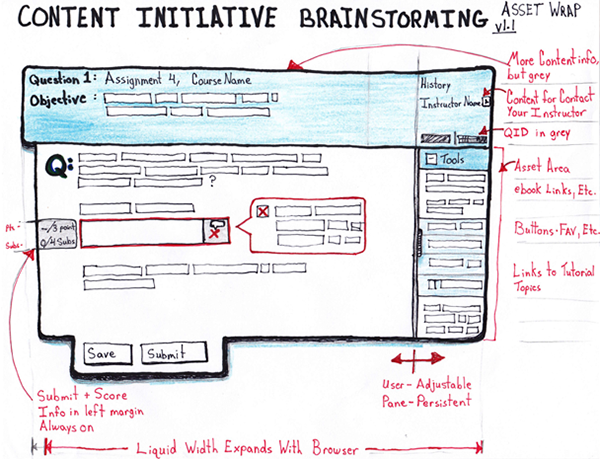 CONTENT INITIATIVE BRAINSTORMING
ASSET WRAP
v1.1
Question 1: Assignment 4, Course Name
Objective:
History
Instructor Name
More Content info,
but grey
Content for Contact
Your Instructor
QID in grey
Q:
?
Tools
Asset Area
ebook Links, Etc.
Buttons-FAV, Etc.
Links to Tutorial
Topics
Pts-
Subs-
-/3 point
0/4 Subs
Save
Submit
Submit + Score
Info in left margin
Always on
User-Adjustable
Pane-Persistent
Liquid Width Expands With Browser